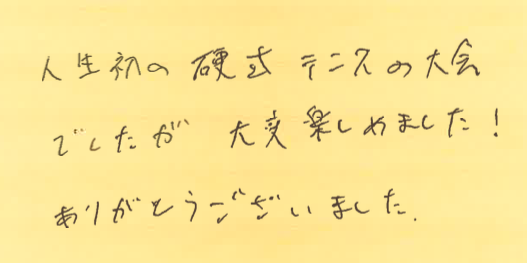 人生初の硬式テニスの大会
でしたが 大変楽しめました!
ありがとうございました.